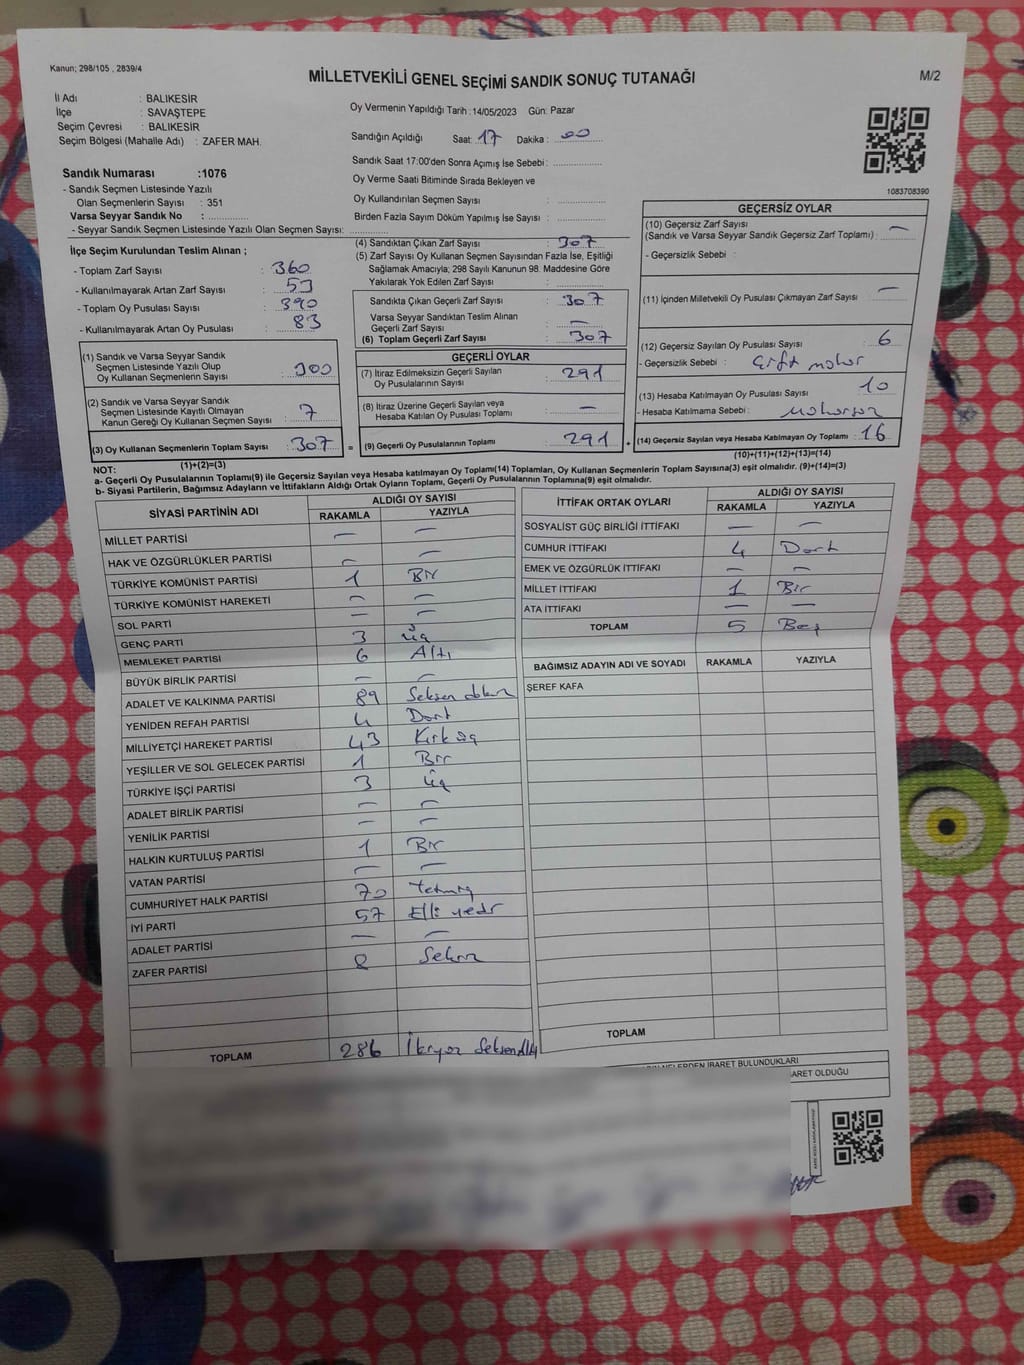 Kanun; 298/105 , 2839/4
MİLLETVEKİLİ GENEL SEÇİMİ SANDIK SONUÇ TUTANAĞI
M/2
İl Adı : BALIKESİR
İlçe : SAVAŞTEPE
Seçim Çevresi : BALIKESİR
Seçim Bölgesi (Mahalle Adı) : ZAFER MAH.
Oy Vermenin Yapıldığı Tarih : 14/05/2023 Gün: Pazar
Sandığın Açıldığı Saat: 17 Dakika : 00
Sandık Saat 17:00'den Sonra Açımış İse Sebebi : ................
Oy Verme Saati Bitiminde Sırada Bekleyen ve
Oy Kullandırılan Seçmen Sayısı : ................
Birden Fazla Sayım Döküm Yapılmış İse Sayısı : ................
1083708390
Sandık Numarası :1076
- Sandık Seçmen Listesinde Yazılı
Olan Seçmenlerin Sayısı : 351
Varsa Seyyar Sandık No : ..............
- Seyyar Sandık Seçmen Listesinde Yazılı Olan Seçmen Sayısı: ..............
İlçe Seçim Kurulundan Teslim Alınan ;
- Toplam Zarf Sayısı : 360
- Kullanılmayarak Artan Zarf Sayısı : 53
- Toplam Oy Pusulası : 390
- Kullanılmayarak Artan Oy Pusulası : 83
(1) Sandık ve Varsa Seyyar Sandık
Seçmen Listesinde Yazılı Olup
Oy Kullanan Seçmenlerin Sayısı : 300
(2) Sandık ve Varsa Seyyar Sandık
Seçmen Listesinde Kayıtlı Olmayan
Kanun Gereği Oy Kullanan Seçmen Sayısı : 7
(3) Oy Kullanan Seçmenlerin Toplam Sayısı : 307
(1)+(2)=(3)
(4) Sandıktan Çıkan Zarf Sayısı : 307
(5) Zarf Sayısı Oy Kullanan Seçmen Sayısından Fazla İse, Eşitliği
Sağlamak Amacıyla; 298 Sayılı Kanunun 98. Maddesine Göre
Yakılarak Yok Edilen Zarf Sayısı : ..............
Sandıkta Çıkan Geçerli Zarf Sayısı : 307
Varsa Seyyar Sandıktan Teslim Alınan
Geçerli Zarf Sayısı : —
(6) Toplam Geçerli Zarf Sayısı : 307
GEÇERLİ OYLAR
(7) İtiraz Edilmeksizin Geçerli Sayılan
Oy Pusulalarının Sayısı : 291
(8) İtiraz Üzerine Geçerli Sayılan veya
Hesaba Katılan Oy Pusulası Toplamı : —
= (9) Geçerli Oy Pusulalarının Toplamı : 291
GEÇERSİZ OYLAR
(10) Geçersiz Zarf Sayısı
(Sandık ve Varsa Seyyar Sandık Geçersiz Zarf Toplamı) : —
- Geçersizlik Sebebi :
(11) İçinden Milletvekili Oy Pusulası Çıkmayan Zarf Sayısı : —
(12) Geçersiz Sayılan Oy Pusulası Sayısı : 6
- Geçersizlik Sebebi : Çift mühür
(13) Hesaba Katılmayan Oy Pusulası Sayısı : 10
- Hesaba Katılmama Sebebi : Mühürsüz
+ (14) Geçersiz Sayılan veya Hesaba Katılmayan Oy Toplamı : 16
(10)+(11)+(12)+(13)=(14)
NOT:
a- Geçerli Oy Pusulalarının Toplamı(9) ile Geçersiz Sayılan veya Hesaba katılmayan Oy Toplamı(14) Toplamları, Oy Kullanan Seçmenlerin Toplam Sayısına(3) eşit olmalıdır. (9)+(14)=(3)
b- Siyasi Partilerin, Bağımsız Adayların ve İttifakların Aldığı Ortak Oyların Toplamı, Geçerli Oy Pusulalarının Toplamına(9) eşit olmalıdır.
SİYASİ PARTİNİN ADI ALDIĞI OY SAYISI
RAKAMLA YAZIYLA
MİLLET PARTİSİ — —
HAK VE ÖZGÜRLÜKLER PARTİSİ — —
TÜRKİYE KOMÜNİST PARTİSİ 1 Bir
TÜRKİYE KOMÜNİST HAREKETİ — —
SOL PARTİ — —
GENÇ PARTİ 3 üç
MEMLEKET PARTİSİ 6 Altı
BÜYÜK BİRLİK PARTİSİ — —
ADALET VE KALKINMA PARTİSİ 89 Seksen dokuz
YENİDEN REFAH PARTİSİ 4 Dört
MİLLİYETÇİ HAREKET PARTİSİ 43 Kırk üç
YEŞİLLER VE SOL GELECEK PARTİSİ 1 Bir
TÜRKİYE İŞÇİ PARTİSİ 3 üç
ADALET BİRLİK PARTİSİ — —
YENİLİK PARTİSİ — —
HALKIN KURTULUŞ PARTİSİ 1 Bir
VATAN PARTİSİ — —
CUMHURİYET HALK PARTİSİ 70 Yetmiş
İYİ PARTİ 57 Elli yedi
ADALET PARTİSİ — —
ZAFER PARTİSİ 8 Sekiz
TOPLAM 286 İkiyüz Seksen Altı
İTTİFAK ORTAK OYLARI ALDIĞI OY SAYISI
RAKAMLA YAZIYLA
SOSYALİST GÜÇ BİRLİĞİ İTTİFAKI — —
CUMHUR İTTİFAKI 4 Dört
EMEK VE ÖZGÜRLÜK İTTİFAKI — —
MİLLET İTTİFAKI 1 Bir
ATA İTTİFAKI — —
TOPLAM 5 Beş
BAĞIMSIZ ADAYIN ADI VE SOYADI RAKAMLA YAZIYLA
ŞEREF KAFA
TOPLAM
İBARET BULUNDUKLARI
OLDUĞU